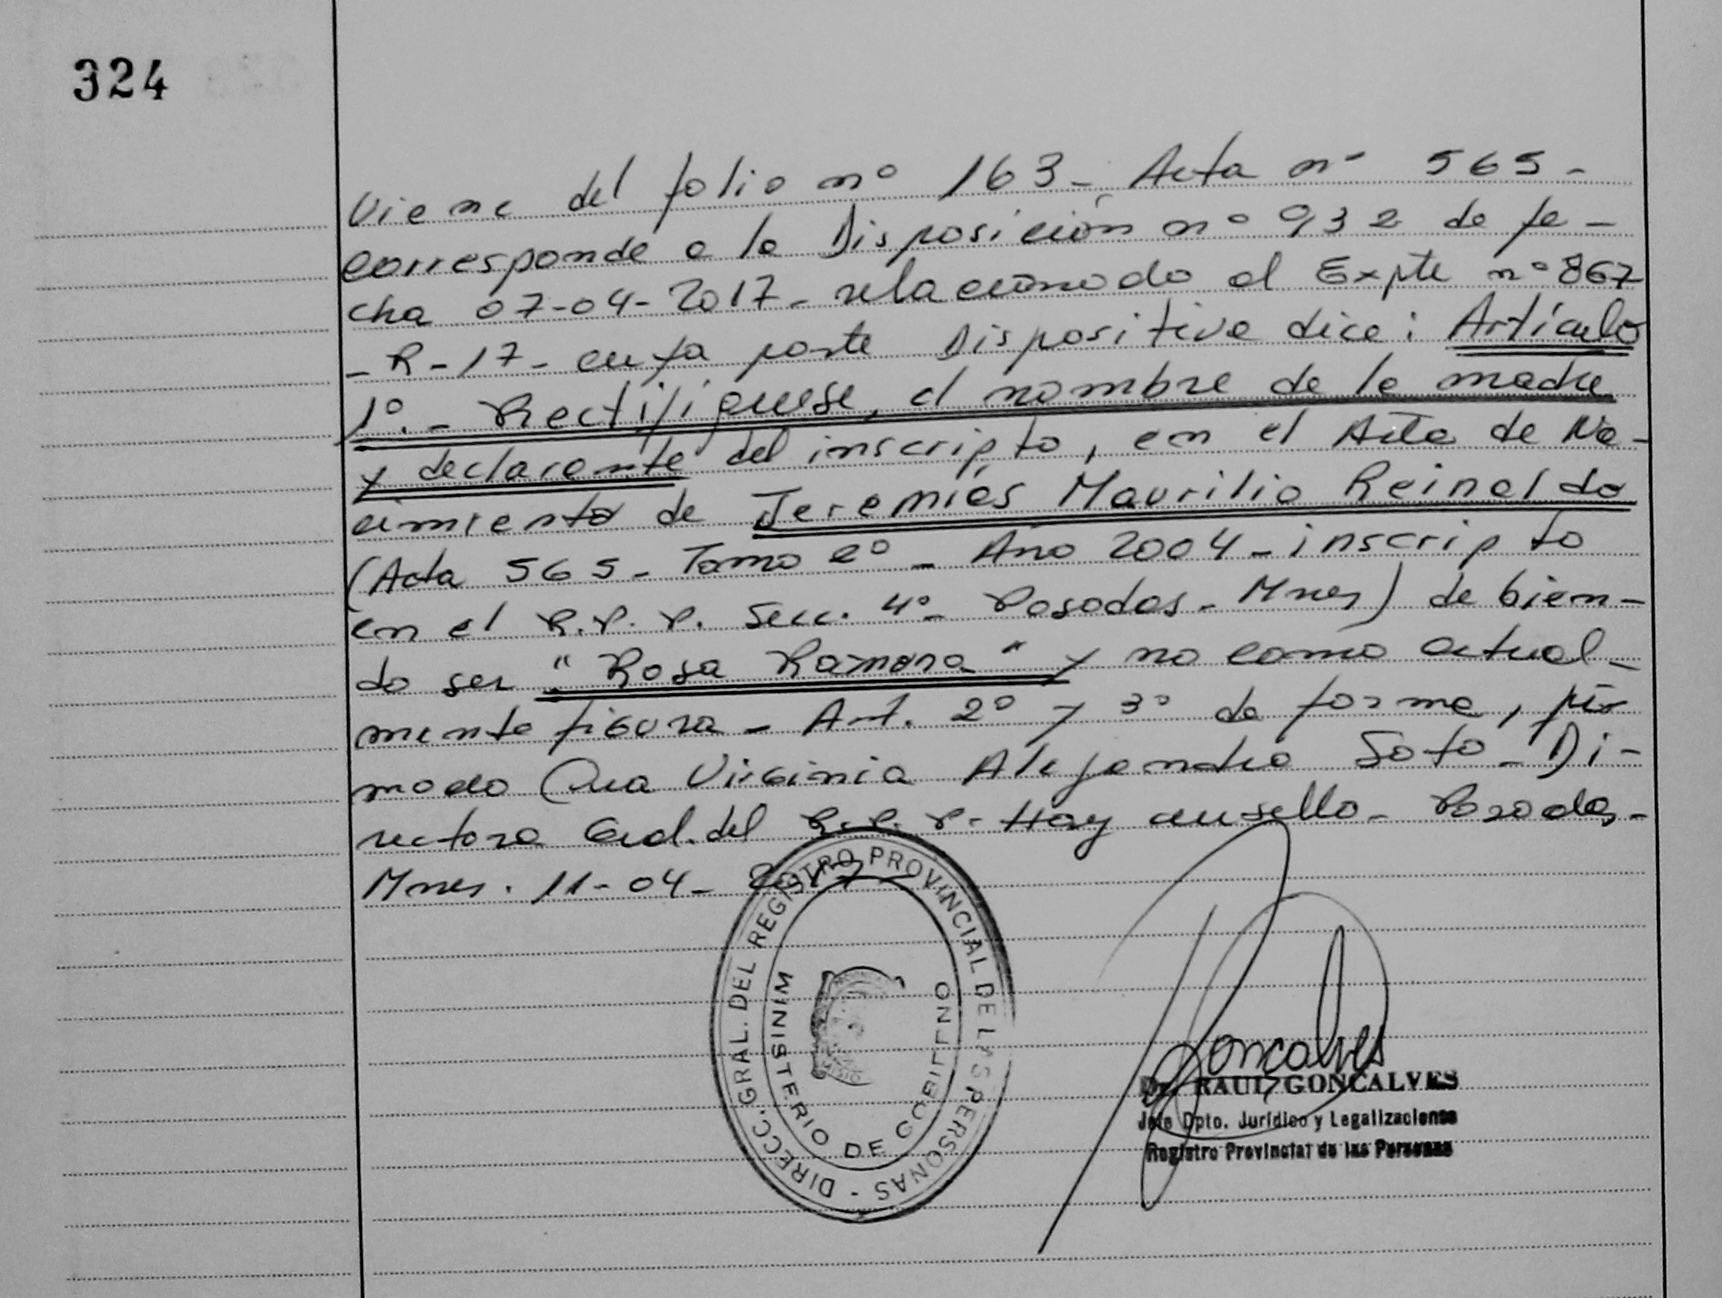 324
Viene del folio nº 163 - Acta nº 565 -
corresponde a la Disposición nº 932 de fe -
cha 07-04-2017 - relacionado al Expte nº 867
- R - 17 - cuya parte Dispositiva dice : Artículo
1º. - Rectifíquese, el nombre de la madre
y declarante del inscripto, en el Acta de Na -
cimiento de Jeremías Maurilio Reinaldo
(Acta 565 - Tomo 2º - Año 2004 - inscripto
en el R.P.P. Secc. 4º - Posadas - Mnes) debien -
do ser " Rosa Ramona " y no como actual -
mente figura - Art. 2º y 3º de forma,
Virginia Alejandra Soto - Di -
rectora Gral. del R.P.P. - Hay un sello - Posadas, -
Mnes. 11 - 04 - 2017
DIRECC. GRAL. DEL REGISTRO PROVINCIAL DE LAS PERSONAS -
MINISTERIO DE GOBIERNO
Goncalves
Dr. RAUL GONCALVES
Jefe Dpto. Jurídico y Legalizaciones
Registro Provincial de las Personas